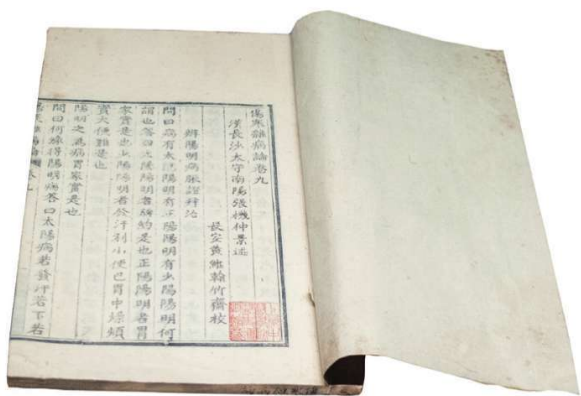 傷寒雜病論卷九
漢長沙太守南陽張機仲景述
長安黃維翰竹齋校
辨陽明病脈證并治
問曰病有太陽陽明有正陽陽明有少陽陽明何
謂也答曰太陽陽明者脾約是也正陽陽明者胃
家實是也少陽陽明者發汗利小便已胃中燥煩
實大便難是也
陽明之為病胃家實是也
問曰何緣得陽明病答曰太陽病若發汗若下若